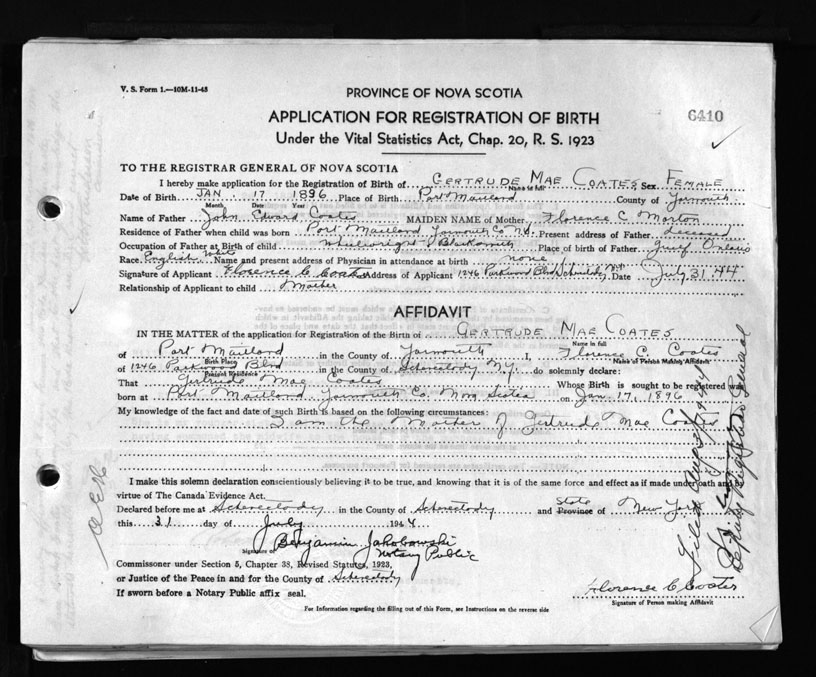 V. S. Form 1.—10M-11-43
PROVINCE OF NOVA SCOTIA
APPLICATION FOR REGISTRATION OF BIRTH
6410
Under the Vital Statistics Act, Chap. 20, R. S. 1923
TO THE REGISTRAR GENERAL OF NOVA SCOTIA
I hereby make application for the Registration of Birth of GERTRUDE MAE COATES Sex FEMALE
Name in full
Date of Birth JAN 17 1896 Place of Birth Port Maitland County of Yarmouth
Month Date Year
Name of Father John Edward Coates MAIDEN NAME of Mother Florence C Morton
Residence of Father when child was born Port Maitland Yarmouth Co N.S. Present address of Father deceased
Occupation of Father at Birth of child Wheelwright & Blacksmith Place of Birth of Father
Race English White Name and present address of Physician in attendance at birth none
Signature of Applicant Florence C Coates Address of Applicant 1246 Parkwood Blvd Schenectady N.Y. Date July 31 44
Relationship of Applicant to child Mother
AFFIDAVIT
IN THE MATTER of the application for Registration of the Birth of GERTRUDE MAE COATES
Name in full
of Port Maitland in the County of Yarmouth I, Florence C. Coates
Birth Place Name of Person Making Affidavit
of 1246 Parkwood Blvd in the County of Schenectady N.Y. do solemnly declare:
Present Residence
That Gertrude Mae Coates Whose Birth is sought to be registered was
born at Port Maitland Yarmouth Co. Nova Scotia on Jan 17, 1896
My knowledge of the fact and date of such Birth is based on the following circumstances:
I am the Mother of Gertrude Mae Coates
I make this solemn declaration conscientiously believing it to be true, and knowing that it is of the same force and effect as if made under oath and by
virtue of The Canada Evidence Act.
Declared before me at Schenectady in the County of Schenectady and Province of State New York
this 31 day of July 1944
Benjamin Jakobowski
Signature of
Notary Public
Commissioner under Section 5, Chapter 38, Revised Statutes, 1923,
or Justice of the Peace in and for the County of Schenectady
If sworn before a Notary Public affix seal.
Florence C Coates
Signature of Person making Affidavit
For Information regarding the filling out of this Form, see Instructions on the reverse side
Deputy Registrar General